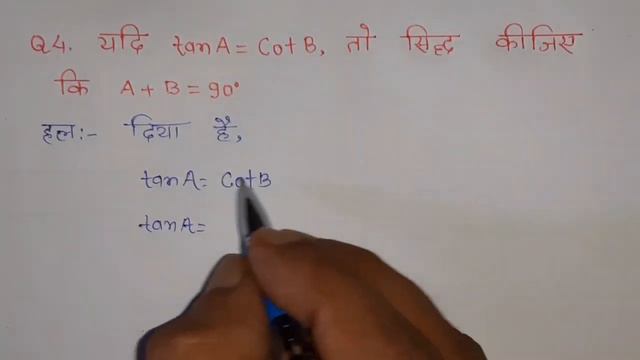 Q4. यदि tanA = CotB, तो सिद्ध कीजिए
कि A + B = 90°
हल:- दिया है,
tanA = CotB
tanA =